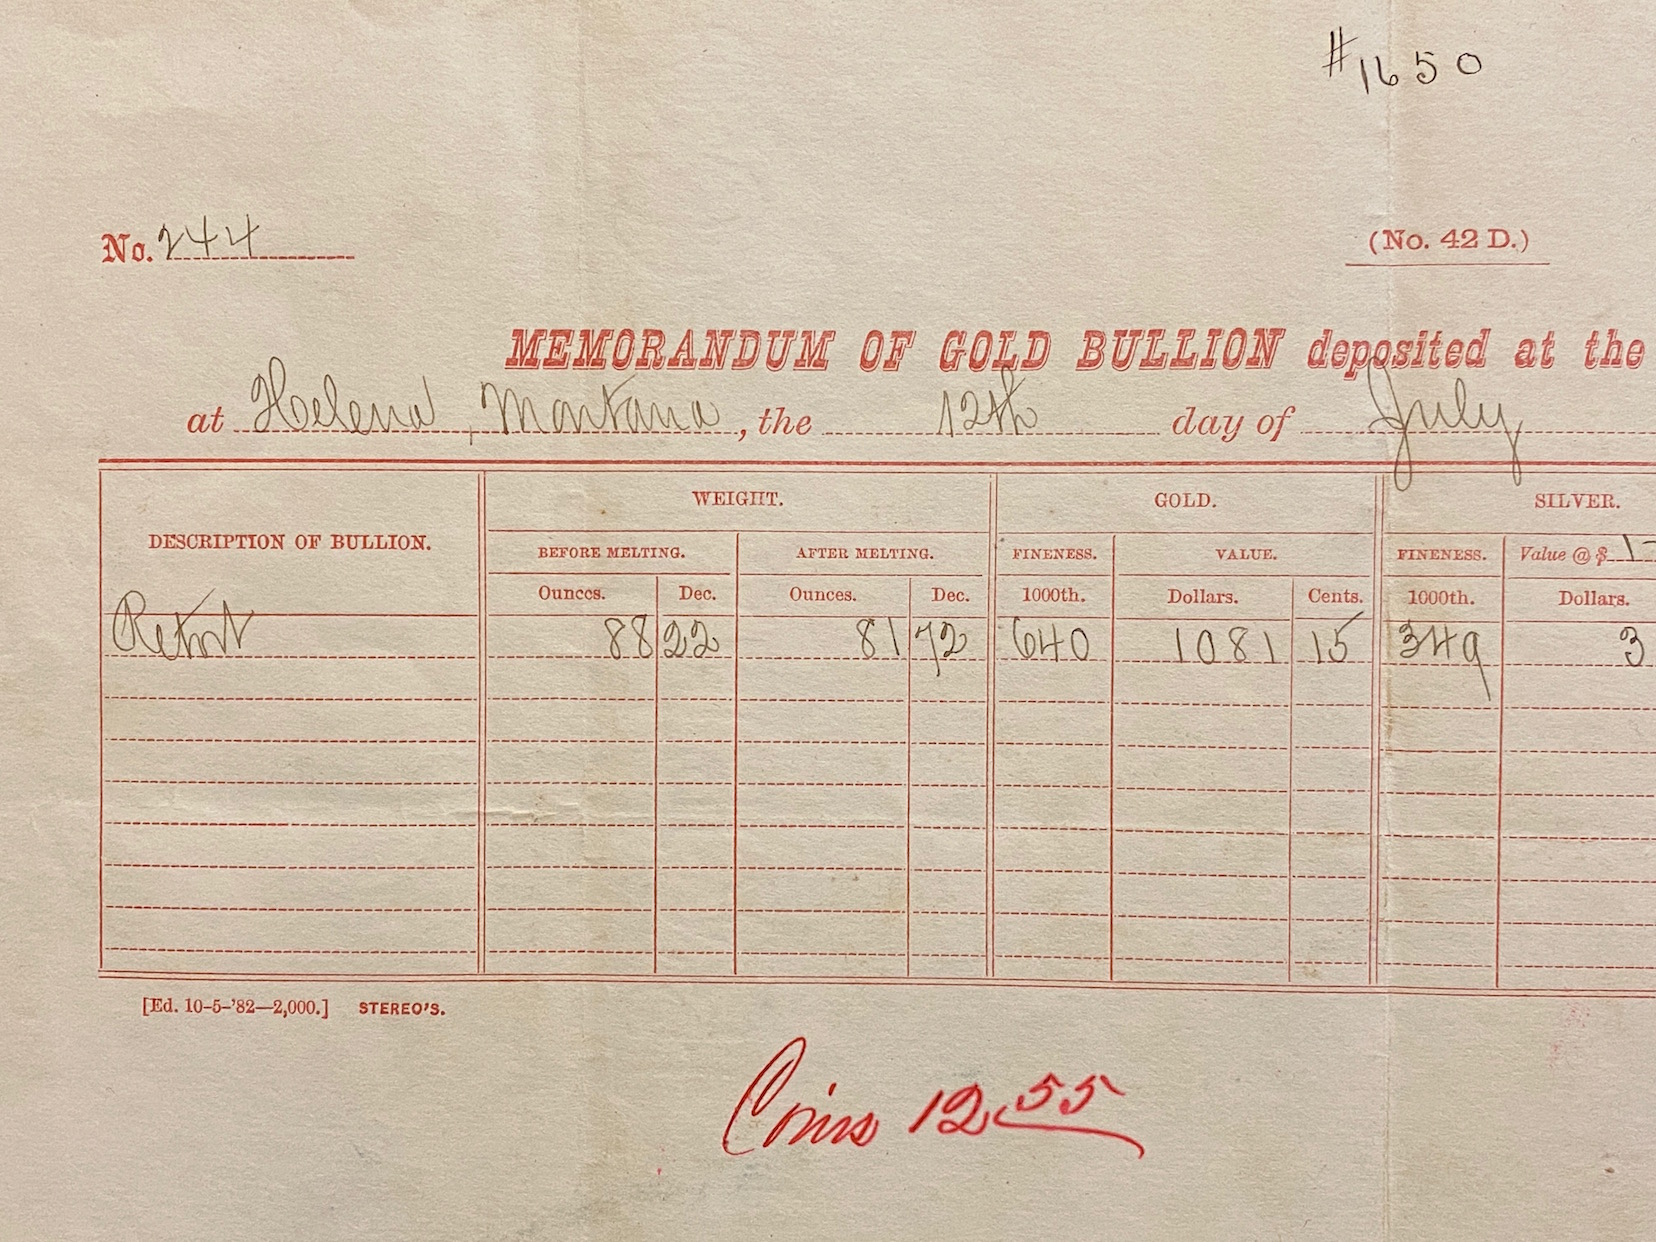 #1650
No. 244 (No. 42 D.)
MEMORANDUM OF GOLD BULLION deposited at the
at Helena, Montana, the 12th day of July
DESCRIPTION OF BULLION. WEIGHT. GOLD. SILVER.
BEFORE MELTING. AFTER MELTING. FINENESS. VALUE. FINENESS. Value @ $ 1
Ounces. Dec. Ounces. Dec. 1000th. Dollars. Cents. 1000th. Dollars.
Retort 88 22 81 72 640 1081 15 349 3
[Ed. 10-5-'82—2,000.] STEREO'S.
Coins 12.55